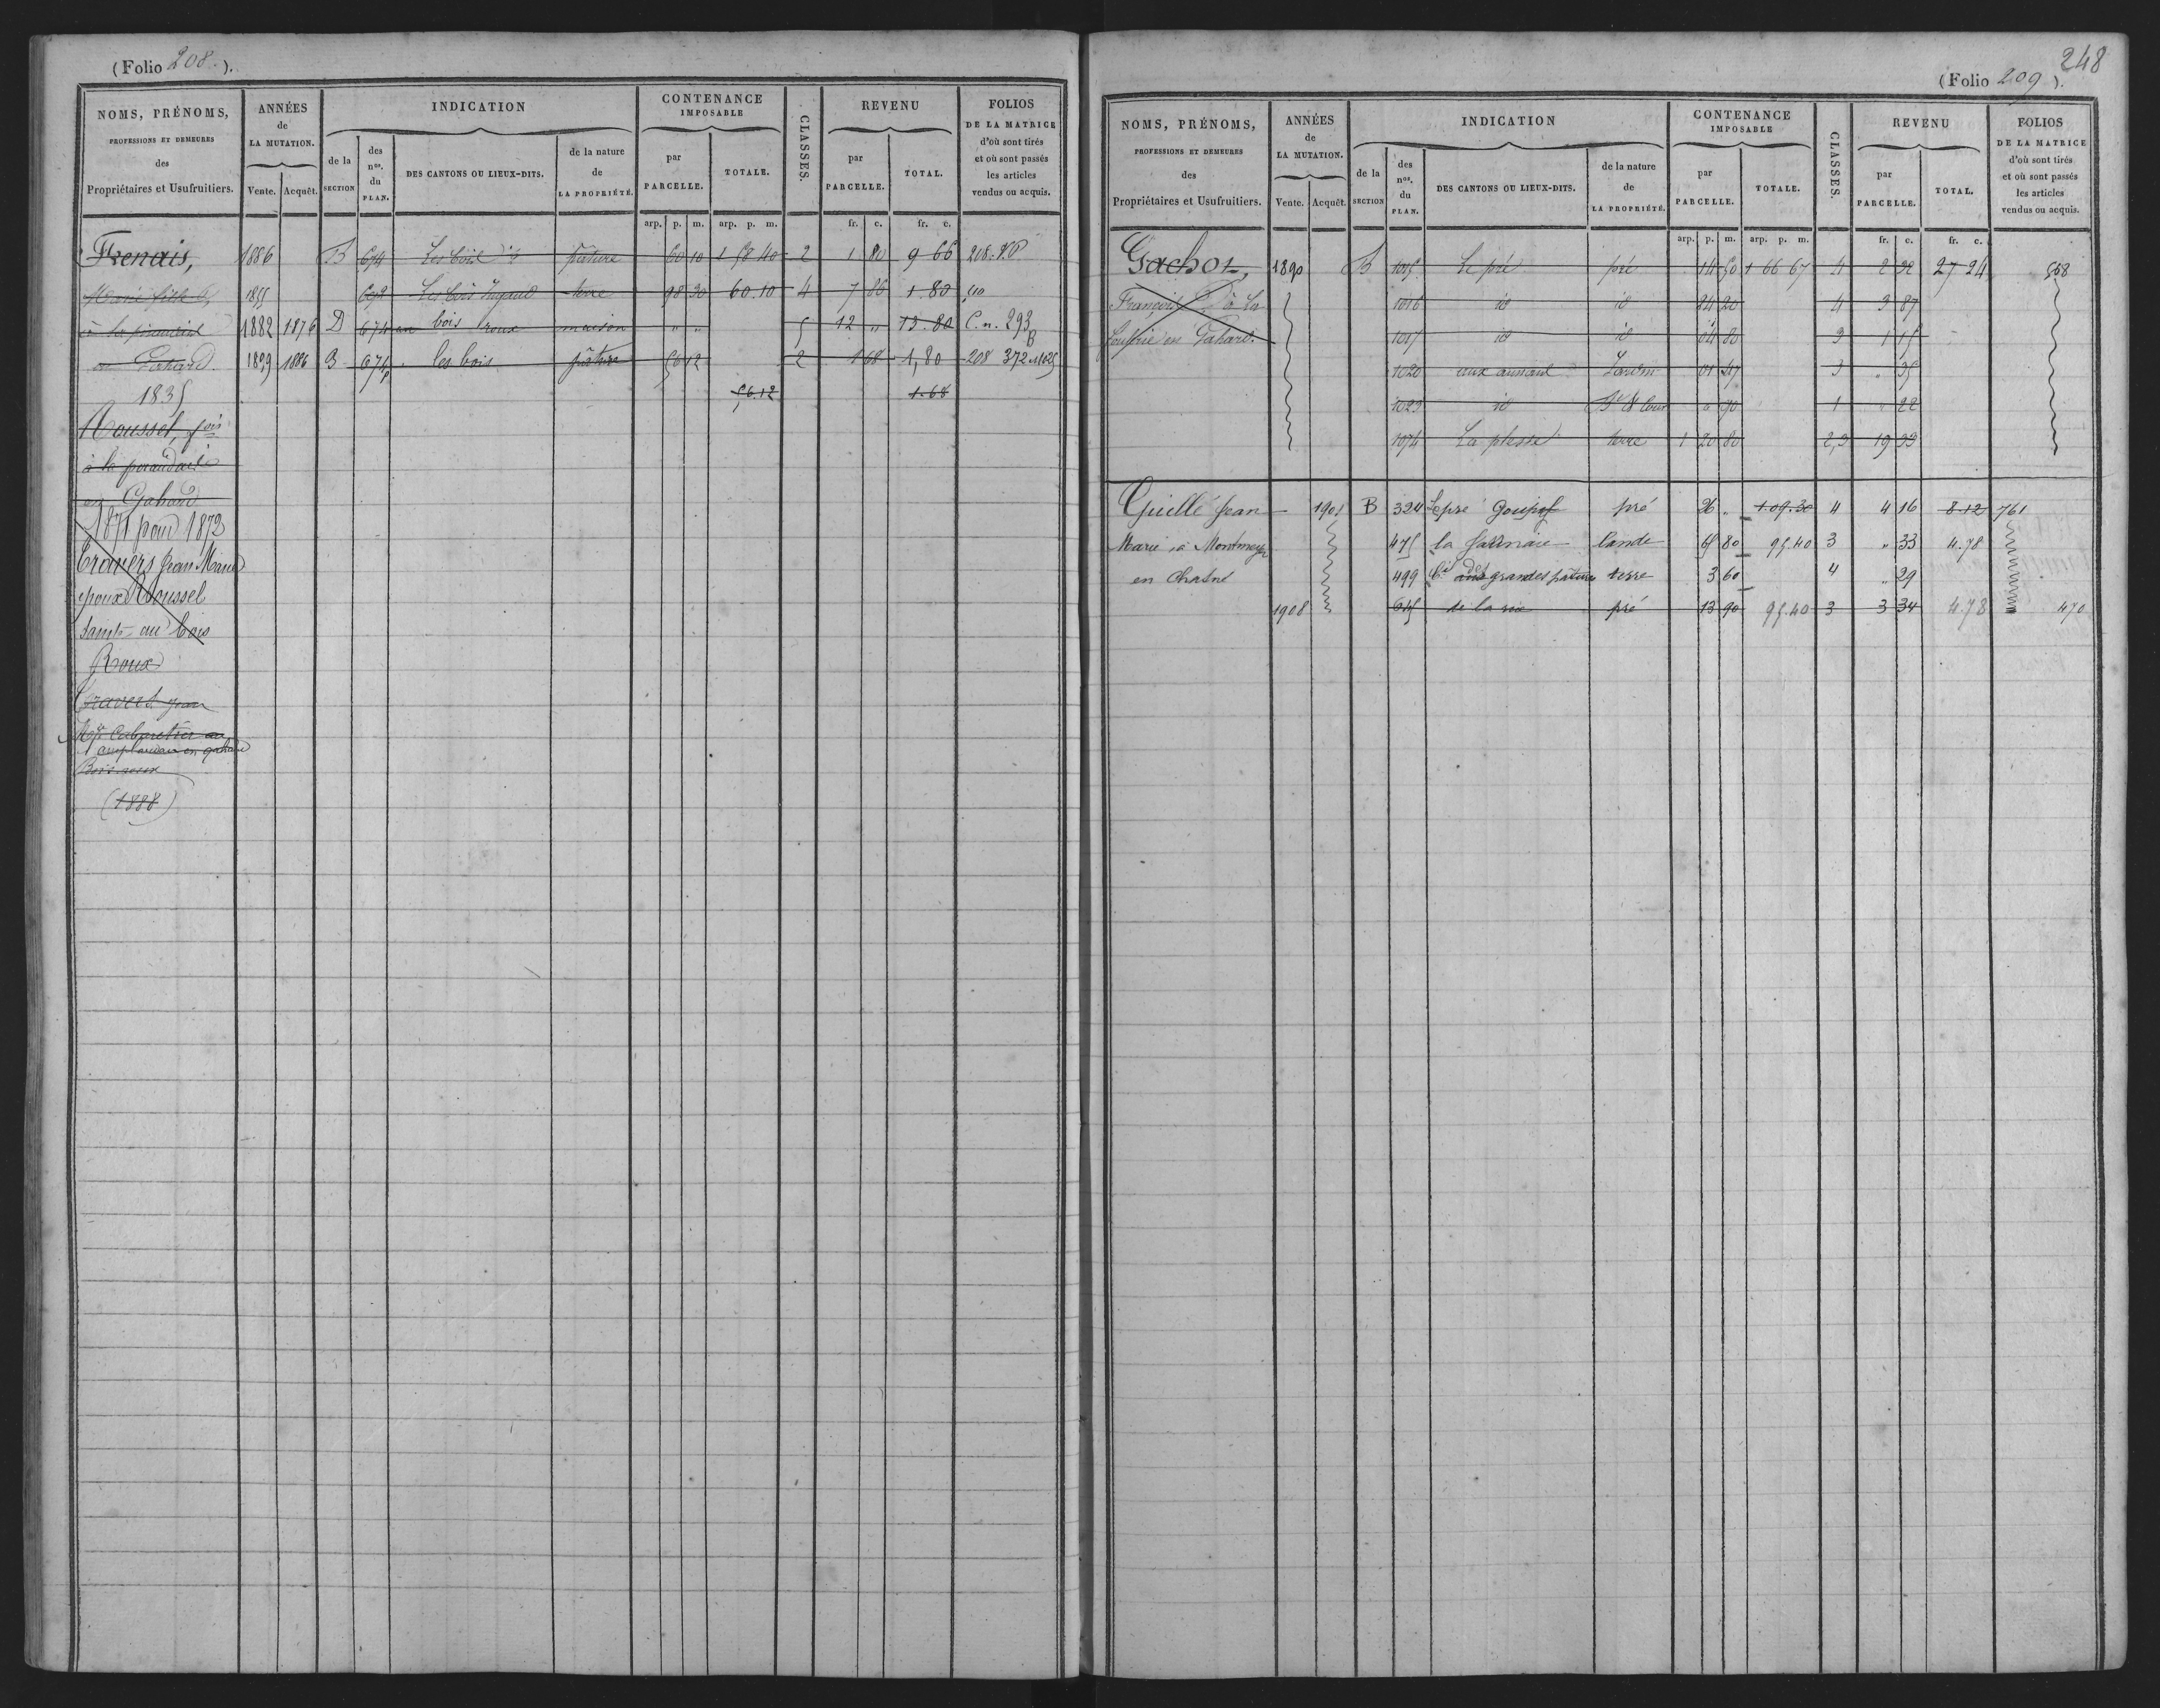 (Folio 208.).
NOMS, PRÉNOMS,
PROFESSIONS ET DEMEURES
des
Propriétaires et Usufruitiers.
ANNÉES
de
LA MUTATION.
Vente. Acquêt.
INDICATION
de la
SECTION
des
nos.
du
PLAN.
DES CANTONS OU LIEUX-DITS.
de la nature
de
LA PROPRIÉTÉ.
CONTENANCE
IMPOSABLE
par
PARCELLE.
TOTALE.
CLASSES.
REVENU
par
PARCELLE.
TOTAL.
FOLIOS
DE LA MATRICE
d'où sont tirés
et où sont passés
les articles
vendus ou acquis.
arp. p. m. arp. p. m. fr. c. fr. c.
Frenais, 1886 B 674 Les bois pature 60 10 1 58 40 2 1 80 9 66 208. V.P
Marie 1855 692 Les bois terre 98 30 60.10 4 7 86 1.80 510
à la 1882 1876 D 674 au bois roux maison " " 5 12 " 13.80 C.n. 293
en Gahard. 1899 1886 B 674p les bois pâture 56 12 2 1 68 1,80 208 372
1835 56.12 1.68
Roussel, fois
à la
en Gahard
1871 pour 1872
Travers Jean Marie
époux Roussel
au bois
Roux
Travers Jean
Cabaretier au
en gahard
Bois roux
(1888)
248
(Folio 209).
NOMS, PRÉNOMS,
PROFESSIONS ET DEMEURES
des
Propriétaires et Usufruitiers.
ANNÉES
de
LA MUTATION.
Vente. Acquêt.
INDICATION
de la
SECTION
des
nos.
du
PLAN.
DES CANTONS OU LIEUX-DITS.
de la nature
de
LA PROPRIÉTÉ.
CONTENANCE
IMPOSABLE
par
PARCELLE.
TOTALE.
CLASSES.
REVENU
par
PARCELLE.
TOTAL.
FOLIOS
DE LA MATRICE
d'où sont tirés
et où sont passés
les articles
vendus ou acquis.
arp. p. m. arp. p. m. fr. c. fr. c.
Gachot, 1890 B 1015 Le pré pré 14 50 1 66 67 4 2 32 27 24 568
François à la 1016 id id 24 20 4 3 87
en Gahard. 1017 id id 04 80 3 1 15
1020 Jardin 01 47 3 " 35
1023 id " 90 1 " 22
1074 La plesse terre 1 20 80 2,3 19 33
Guellé Jean 1901 B 324 Le pré pré 26 " 1.09.30 4 4 16 8.12 761
Marie, à 475 la lande 65 80 95.40 3 " 33 4.78
en Chasné 499 des grandes pâtures terre 3 60 4 " 29
1908 de la pré 13 90 95.40 3 3 34 4.78 470